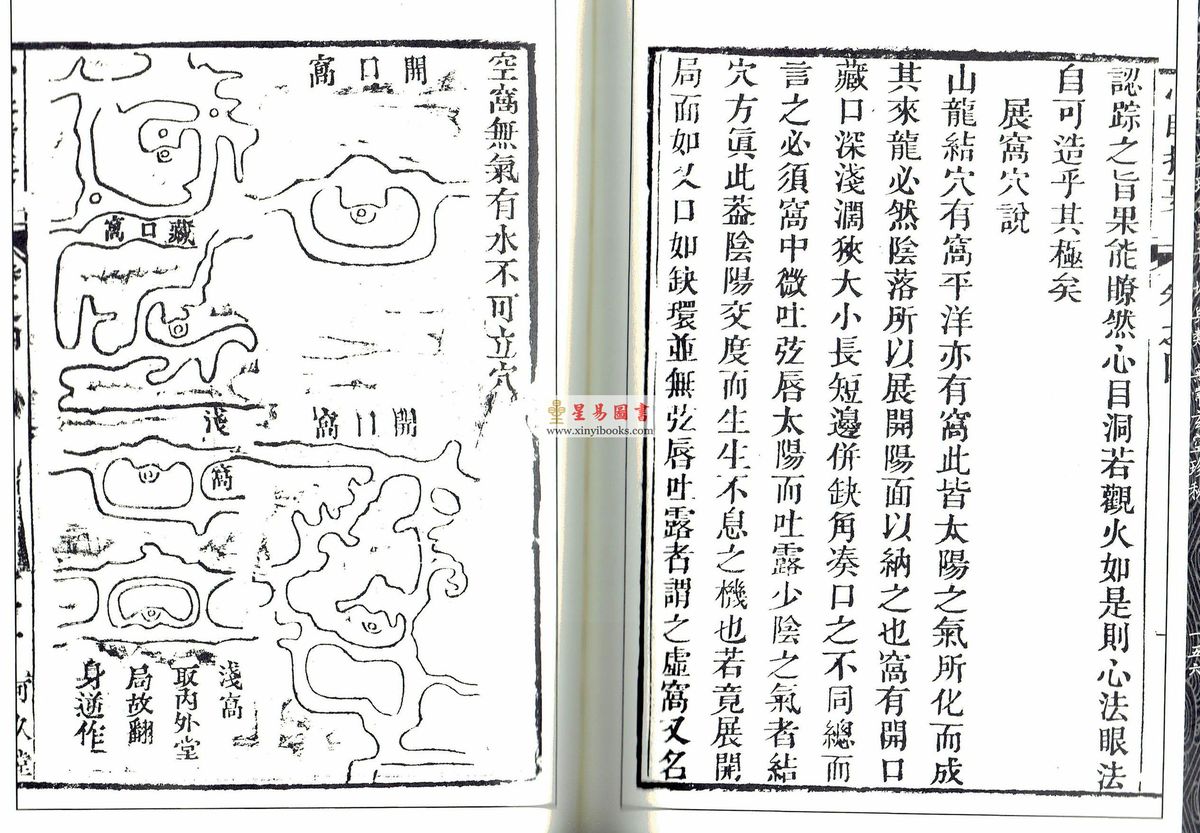 認踪之旨果能瞭然心目洞若觀火如是則心法眼法
自可造乎其極矣
展窩穴說
山龍結穴有窩平洋亦有窩此皆太陽之氣所化而成
其來龍必然陰落所以展開陽面以納之也窩有開口
藏口深淺濶狹大小長短邊併缺角凑口之不同總而
言之必須窩中微吐弦唇太陽而吐露少陰之氣者結
穴方眞此葢陰陽交度而生生不息之機也若竟展開
局面如乂口如缺環並無弦唇吐露者謂之虛窩又名
空窩無氣有水不可立穴
開口窩
開口窩
藏口窩
淺窩
淺窩
取內外堂
局故翻
身逆作
星易圖書
www.xinyibooks.com